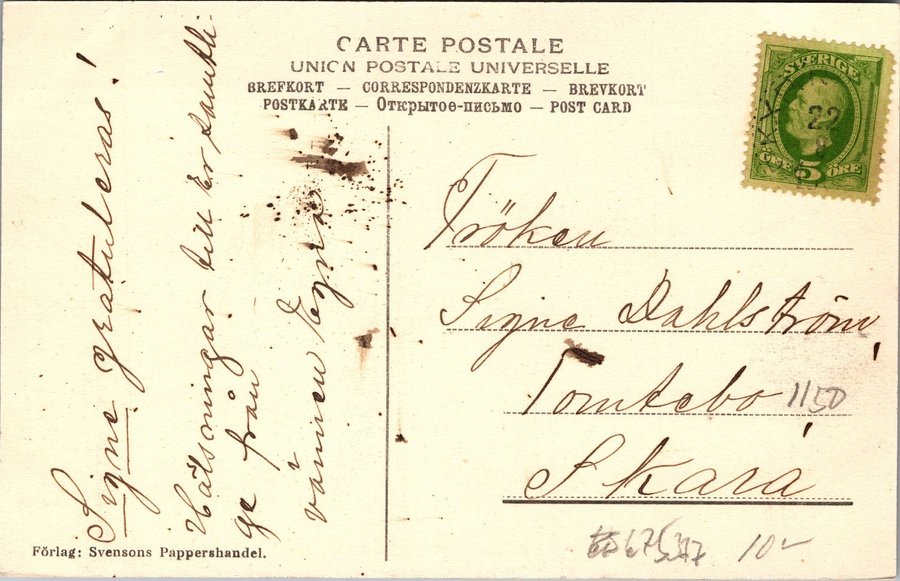 CARTE POSTALE
UNION POSTALE UNIVERSELLE
BREFKORT — CORRESPONDENZKARTE — BREVKORT
POSTKARTE — Открытое-письмо — POST CARD
SVERIGE
22
ÖRE 5 ÖRE
Signe gratuleras!
Hälsningar till Er samtli-
ge från
vännen
Fröken
Signe Dahlström,
Tomtebo
1150
Skara
Förlag: Svensons Pappershandel.
10-